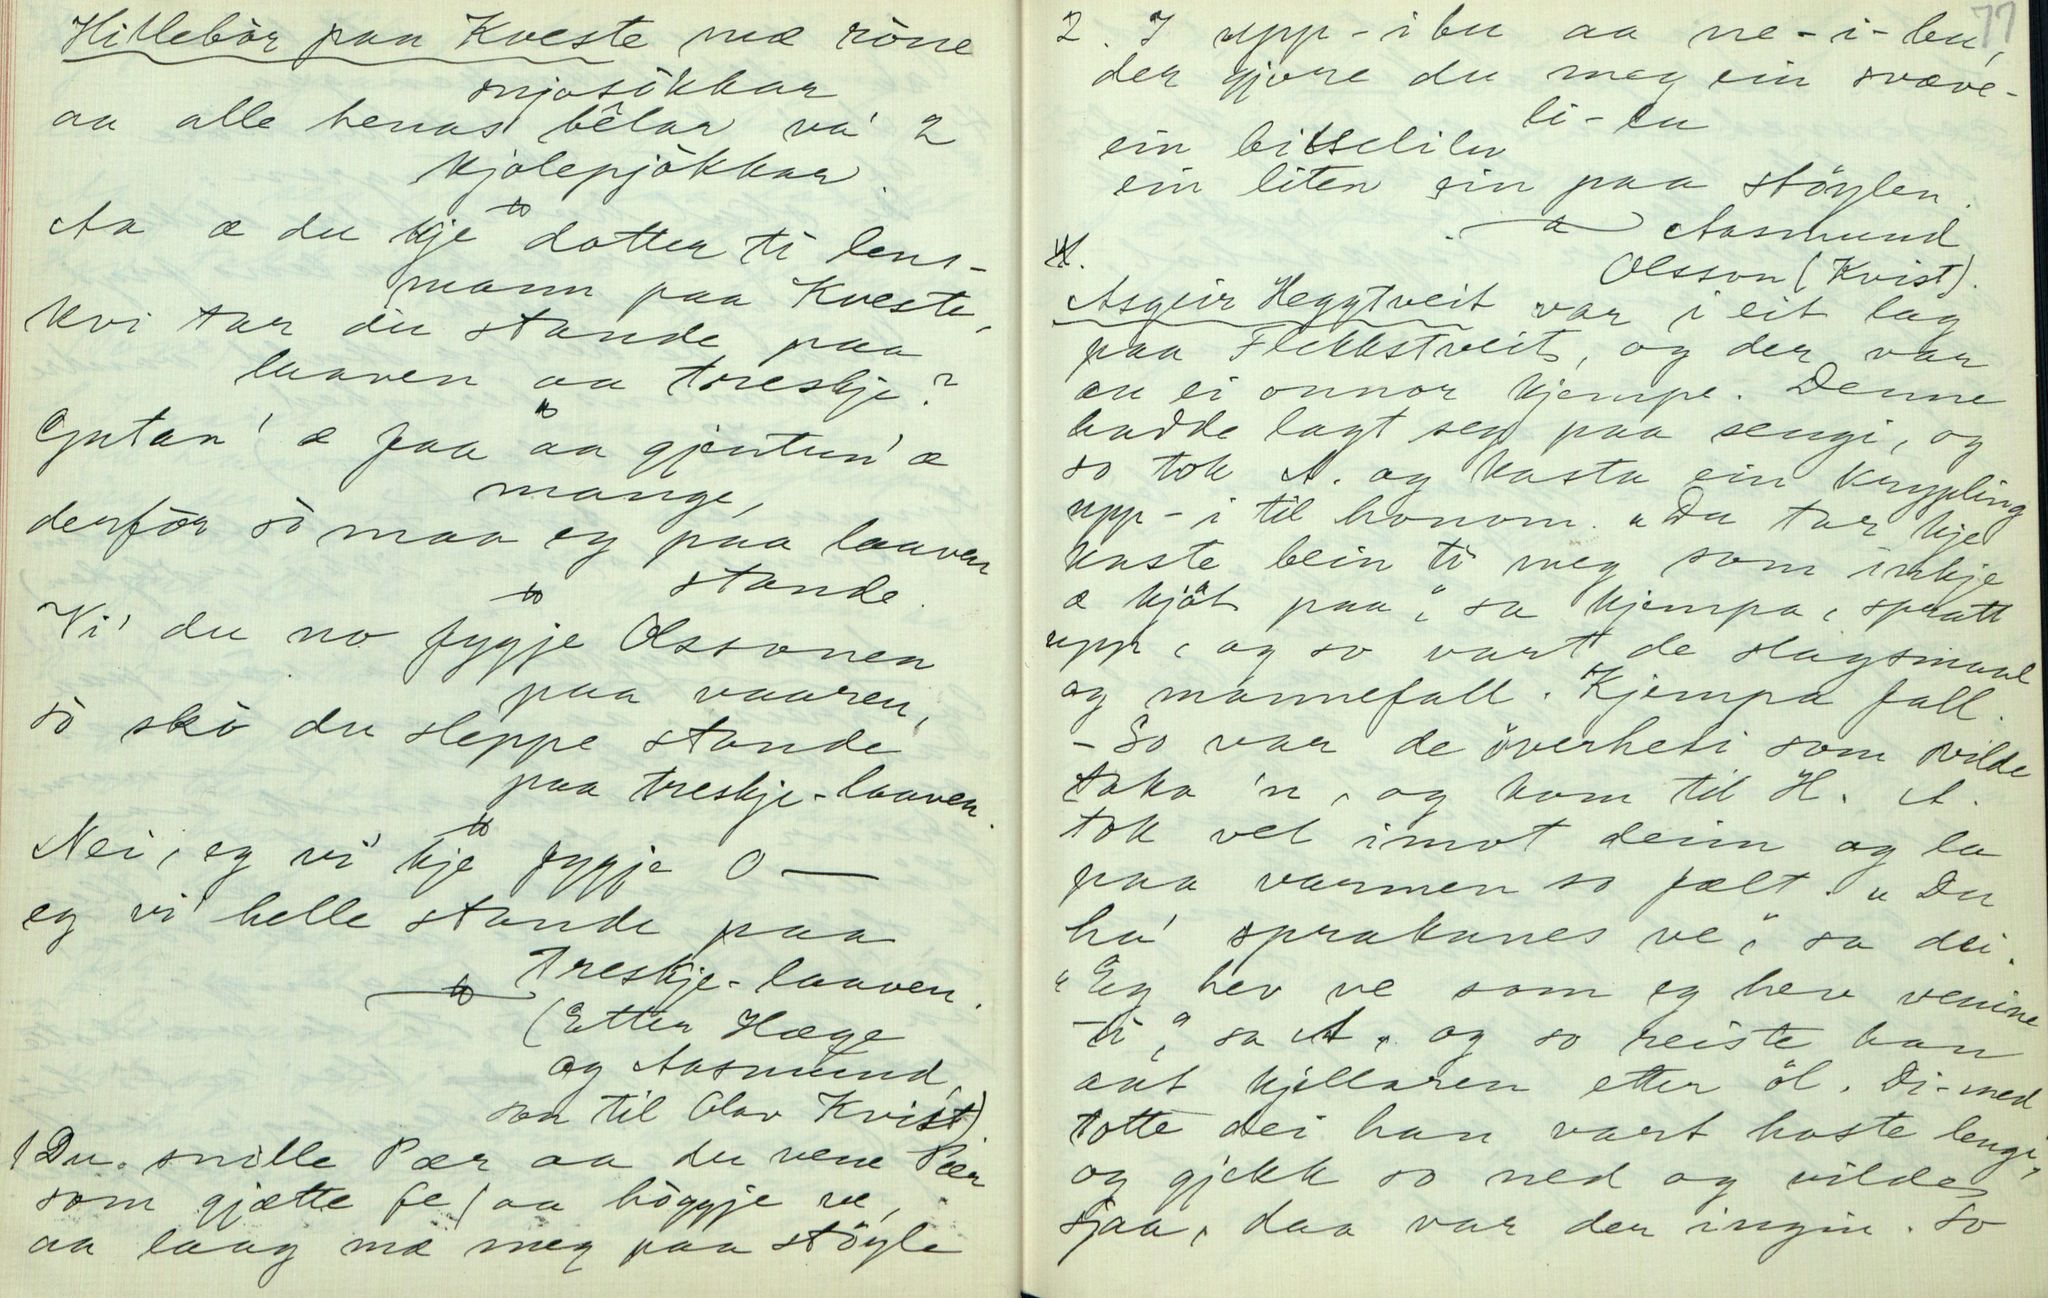 Hillebör paa Kveste mæ röne
snjosökkar
aa alle henas bêlar va' 2
kjolepjökkar.
Aa æ du kje dotter ti lens-
mann paa Kveste,
kvi tar du stande paa
laaven aa treskje?
Gutan' æ faa aa gjentun' æ
mange,
derför sò maa eg paa laaven
stande.
Vi' du no fygje Olssonen
paa vaaren,
sò skò du sleppe stande
paa treskje-laaven.
Nei, eg vi' kje fygje O —
eg vi' helle stande paa
Treskje-laaven.
(Etter Hæge
og Aasmund,
son til Olav Kvist)
1 Du snille Pær aa du vene Pær
som gjætte fe / aa höggje ve,
aa laag mæ meg paa stöyle
77
2. I upp-i bu aa ne-i-bu,
der gjore du meg ein svæve-
li-en
ein bitselilen
ein liten ein paa stöylen.
Aasmund
Olsson (Kvist).
Asgeir Heggtveit var i eit lag
paa Flekkstveit, og der var
au ei onnor kjempe. Denne
hadde lagt seg paa sengi, og
so tok A. og kasta ein krypling
upp-i til honom. "Du tar kje
kaste bein ti meg som inkje
æ kjöt paa," sa kjempa, spratt
upp, og so vart de slagsmaal
og mannefall. Kjempa fall.
- So var de överheti som vilde
taka 'n, og kom til H. A.
tok vel imot deim og la
paa varmen so fælt. "Du
ha' sprakanes ve," sa dei.
"Eg hev ve som eg hev venine
ti," sa A. og so reiste han
aat kjellaren etter öl. Di-med
totte dei han vart boste lengi,
og gjekk so ned og vilde
sjaa, daa var der ingin. So